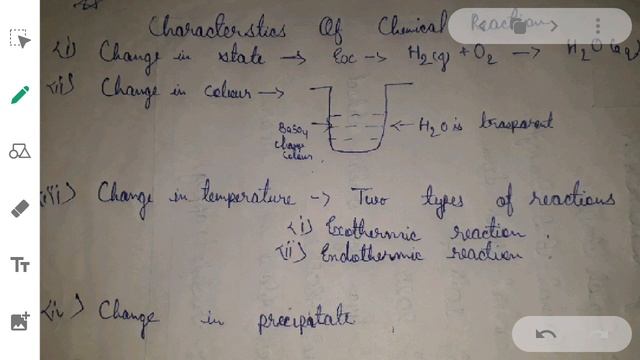 Characterstics Of Chemical Reaction
(i) Change in state → Exc → H2(g) + O2 → H2O(aq)
(ii) Change in colour →
BaSO4 change colour
← H2O is trasparent
(iii) Change in temperature → Two types of reactions
(i) Exothermic reaction.
(ii) Endothermic reaction
(iv) Change in precipitate
TT